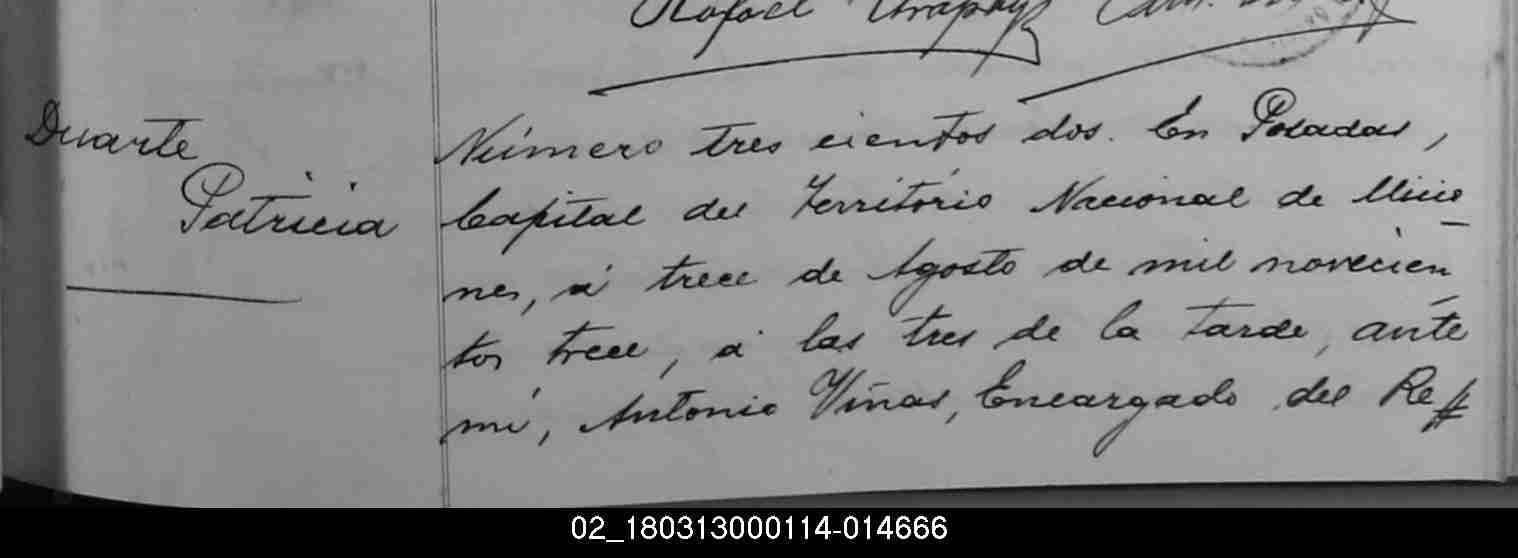 Rafael
Duarte
Patricia
Número tres cientos dos. En Posadas,
Capital del Territorio Nacional de Misio
nes, á trece de Agosto de mil novecien
tos trece, á las tres de la tarde, ante
mi, Antonio Viñas, Encargado del Re
02_180313000114-014666